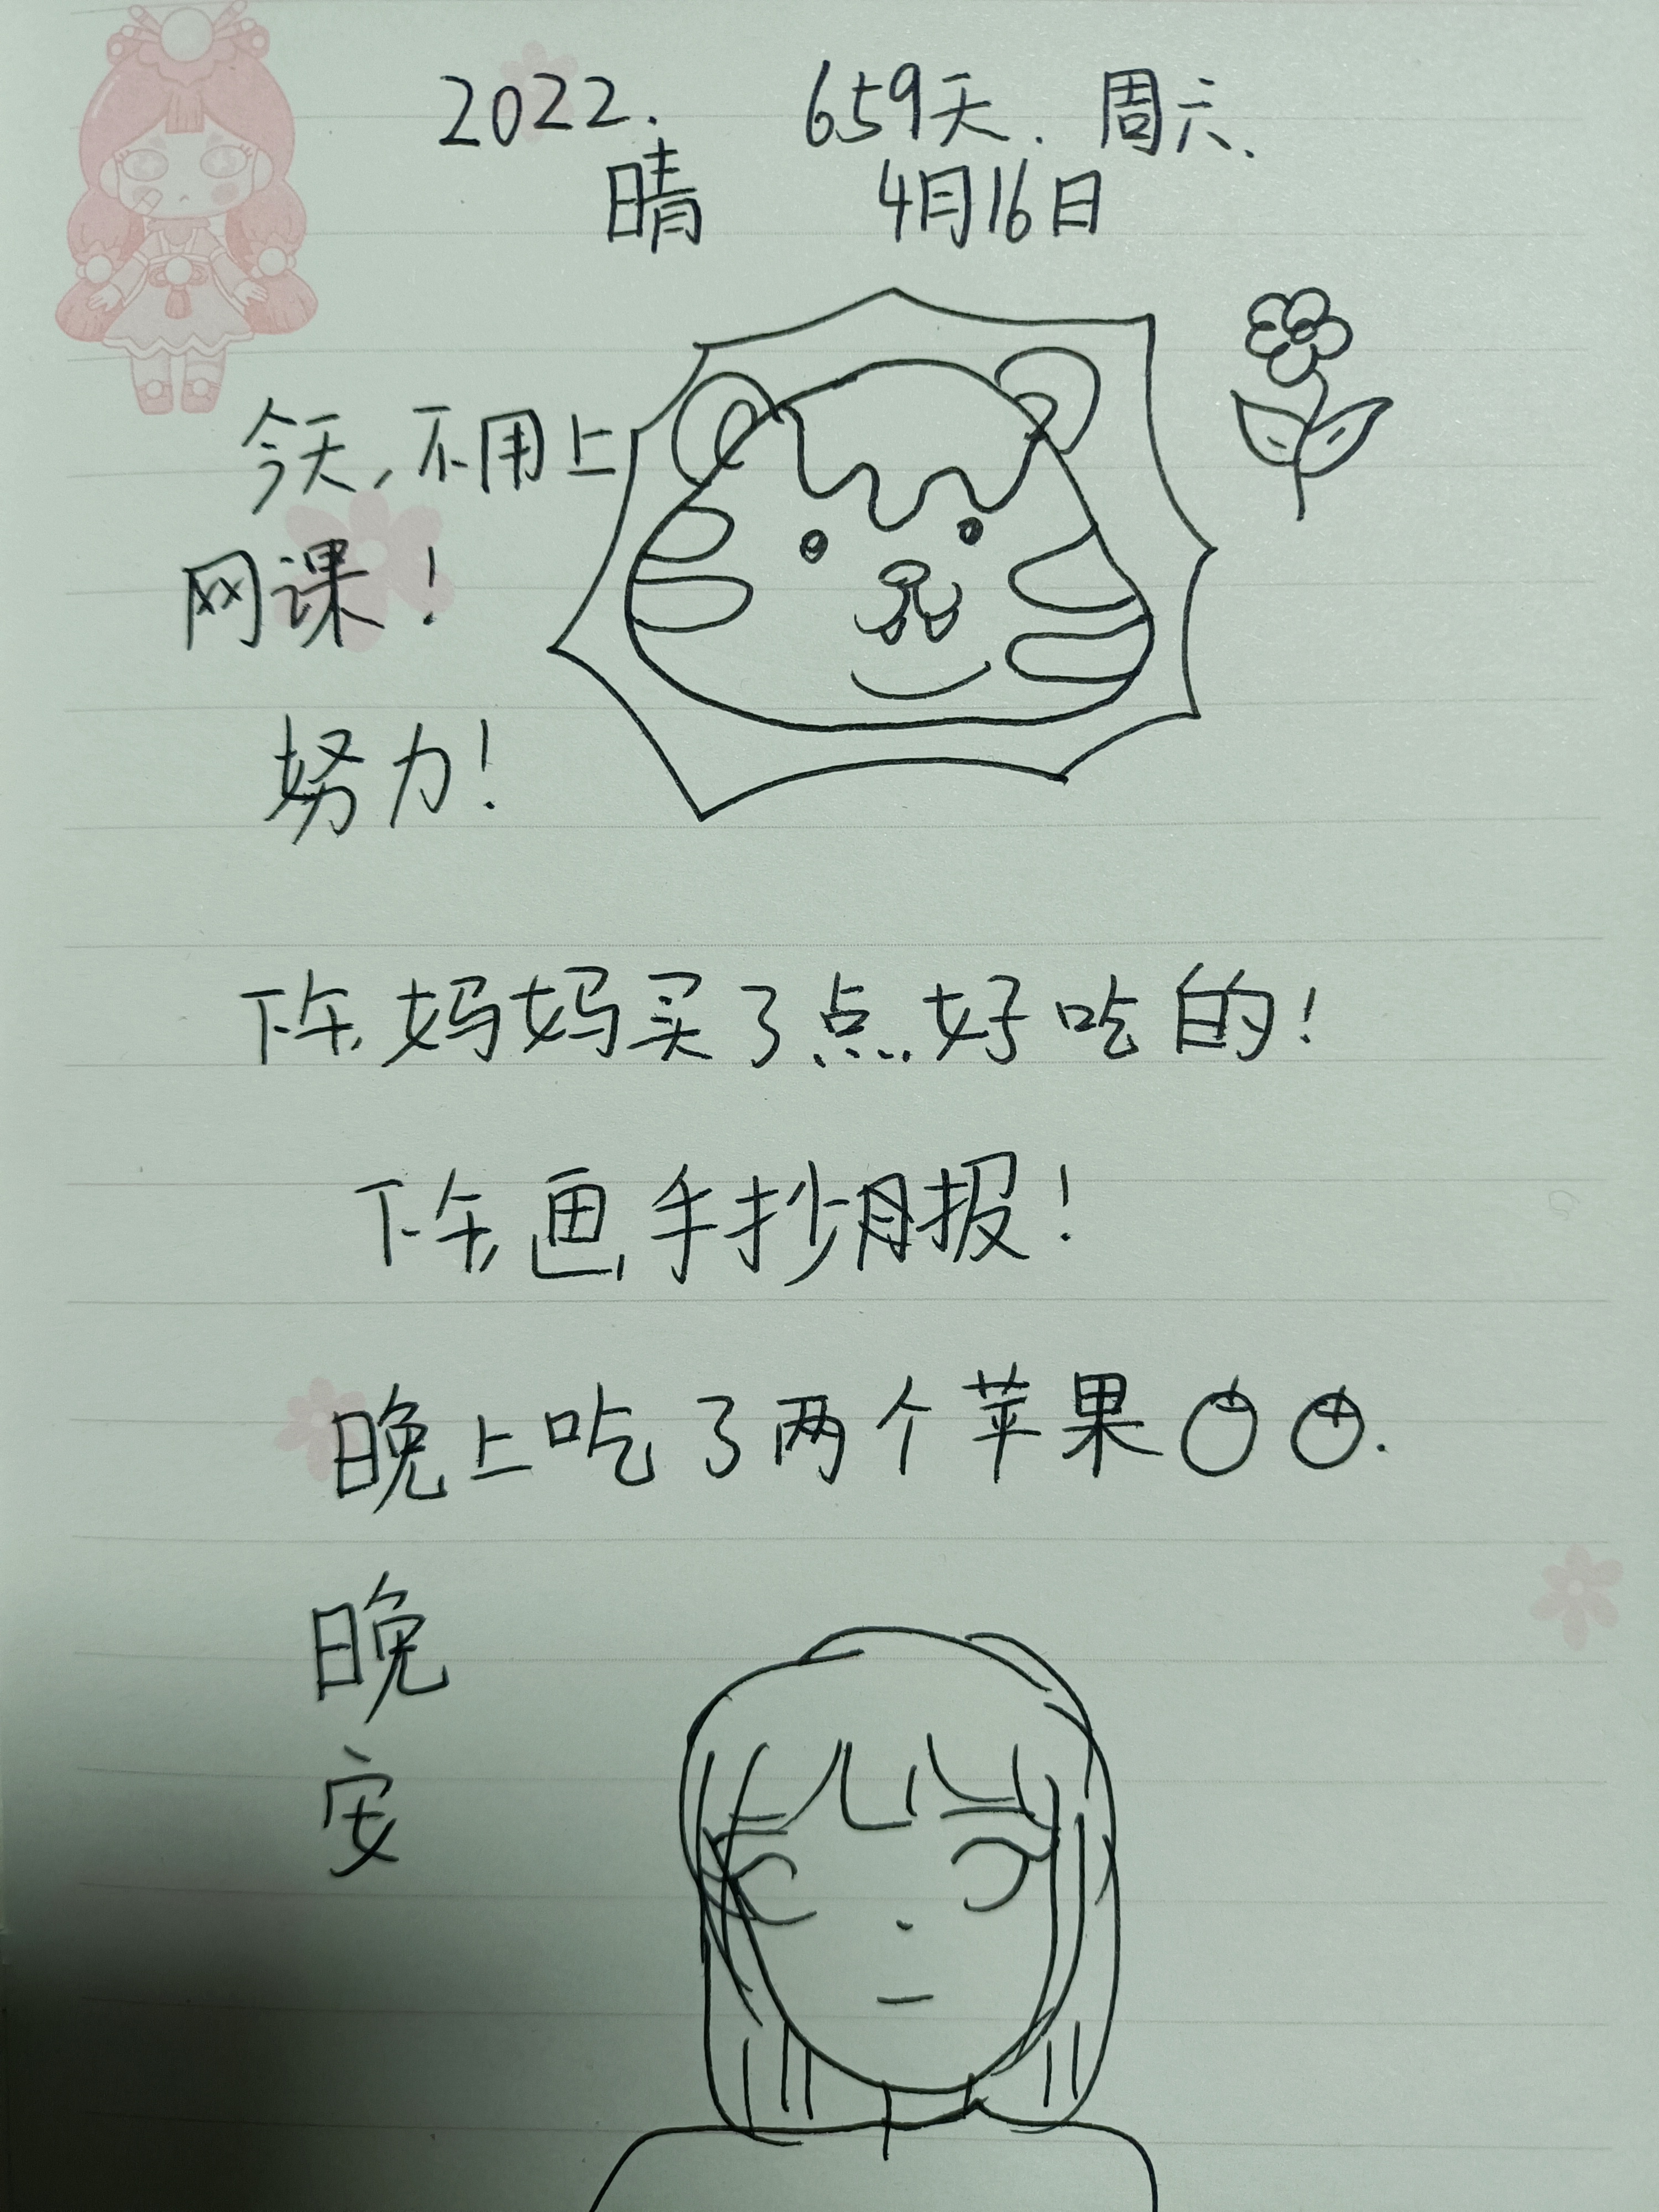 2022. 659天. 周六.
晴 4月16日
今天,不用上
网课!
努力!
下午,妈妈买了点好吃的!
下午,画手抄报!
晚上吃了两个苹果.
晚
安